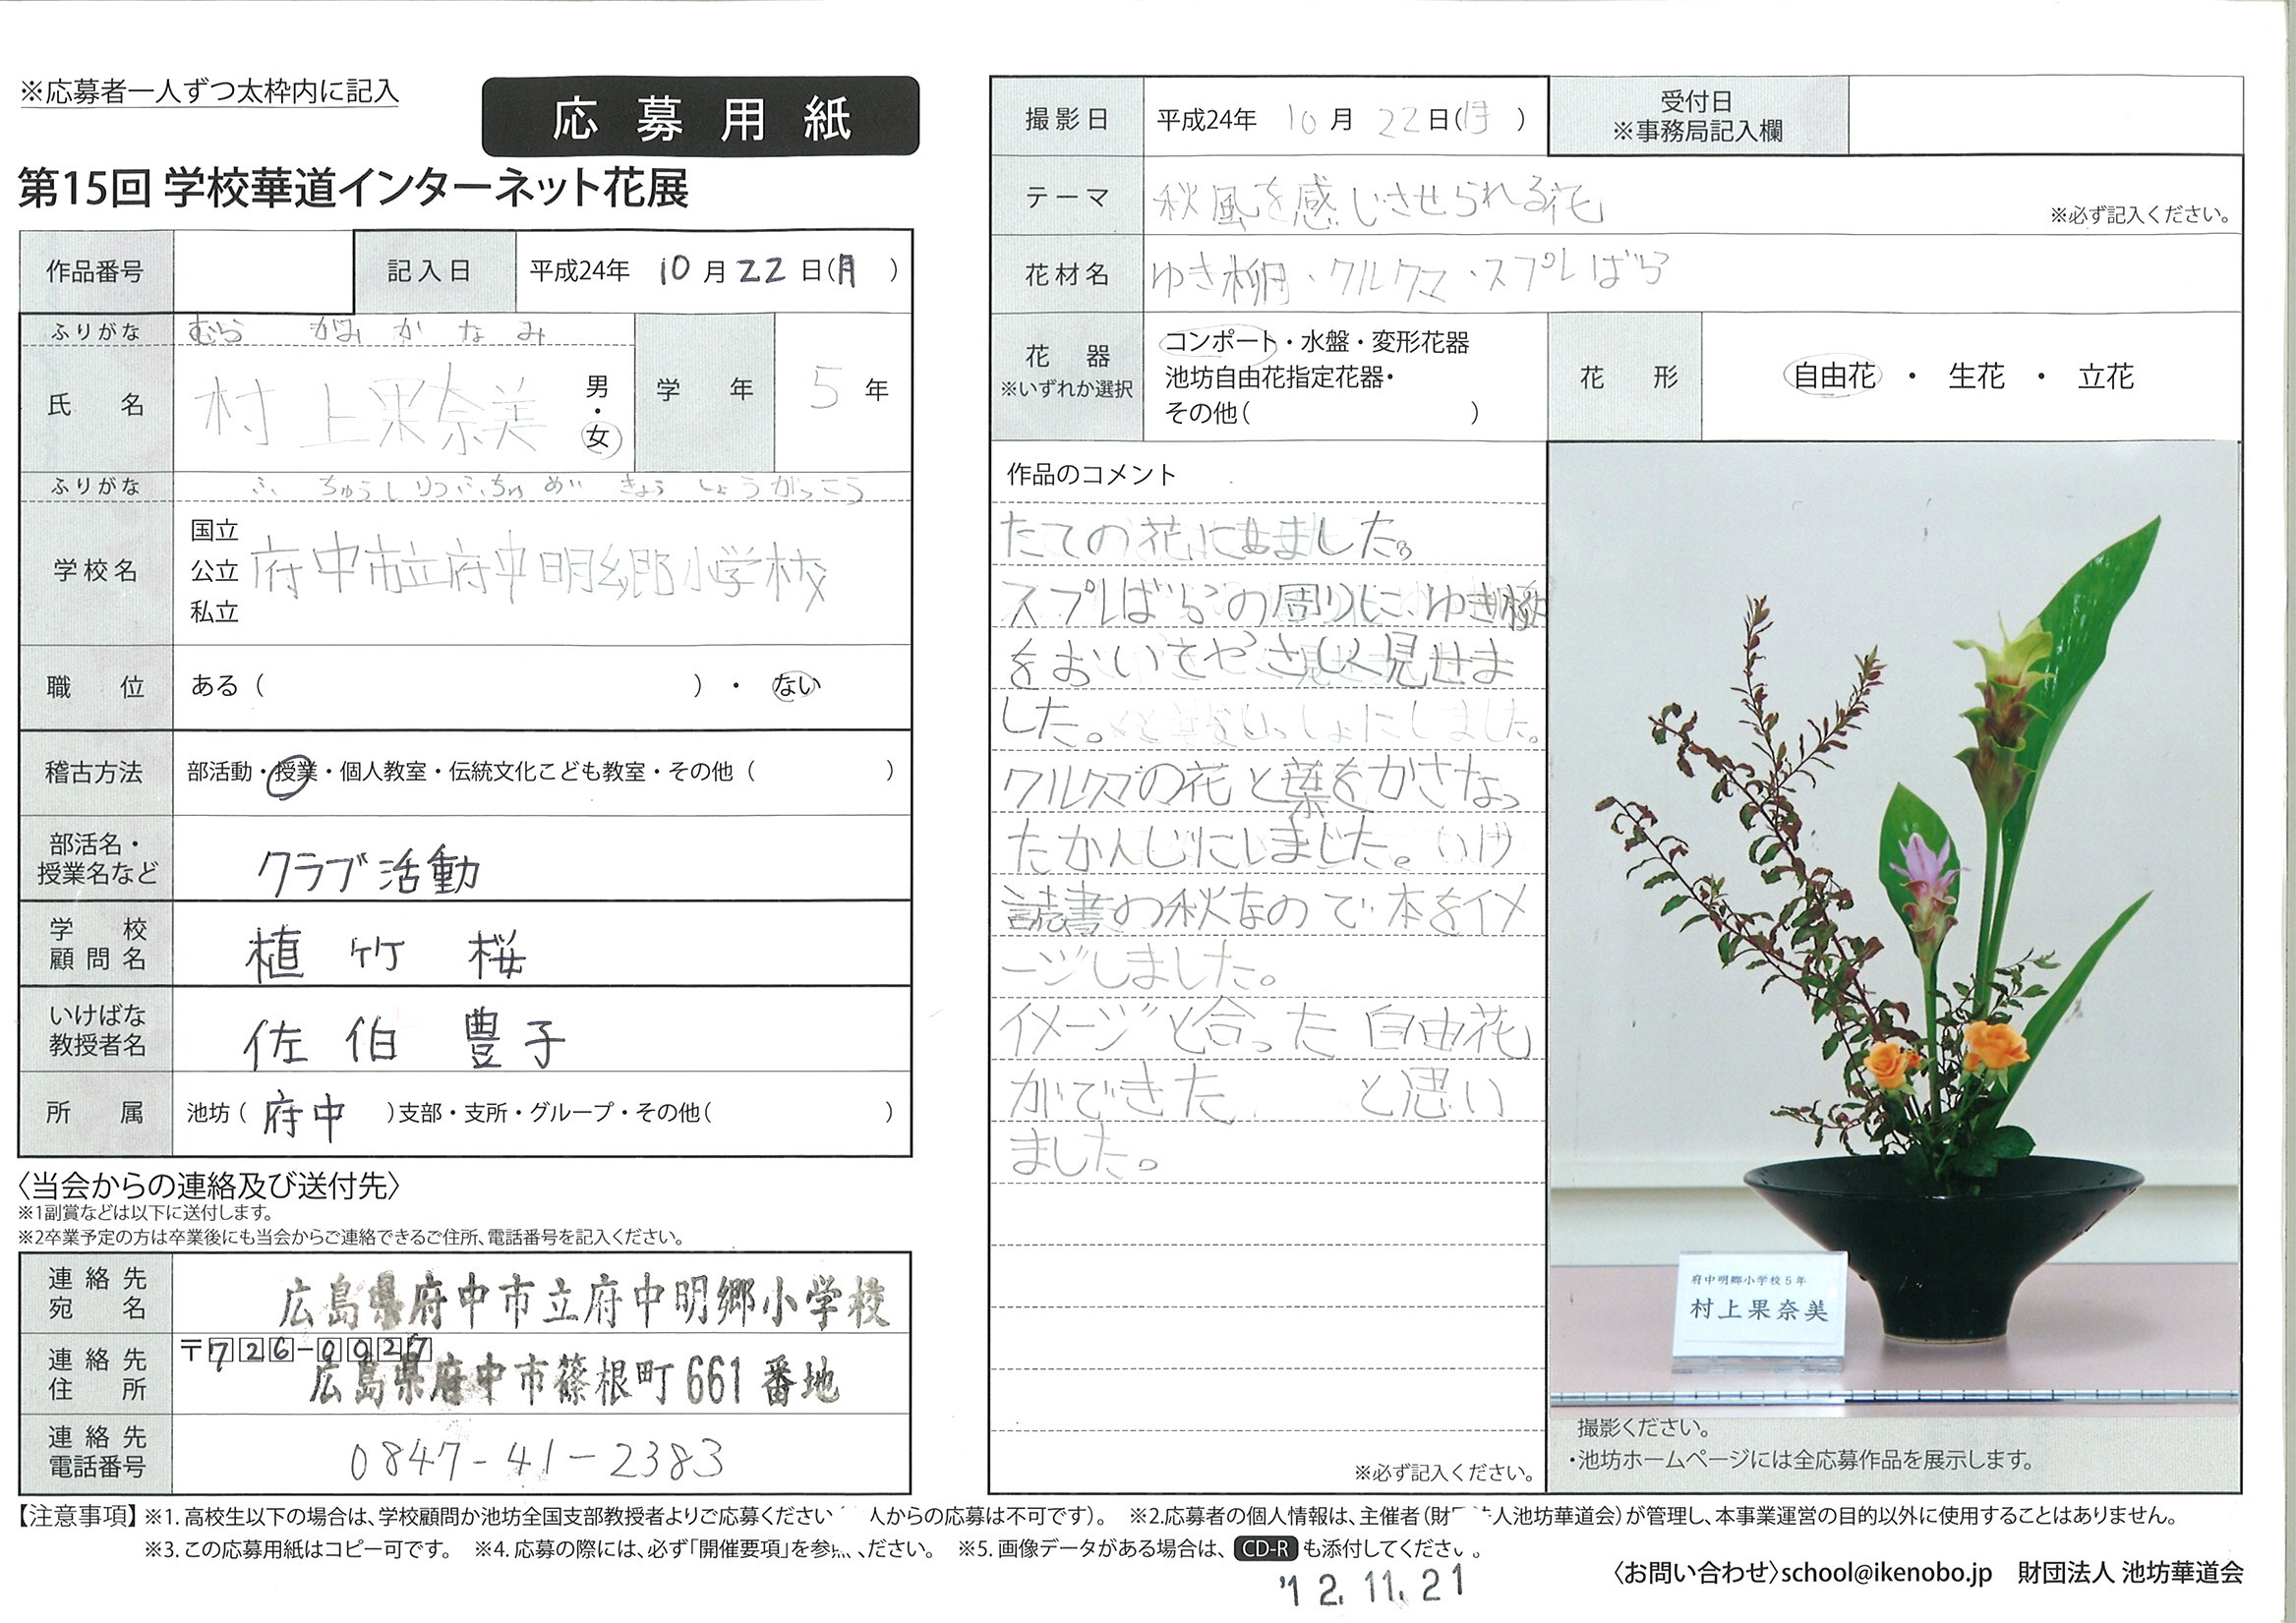 ※応募者一人ずつ太枠内に記入
応募用紙
第15回 学校華道インターネット花展
作品番号
記入日 平成24年 10月22日(月)
ふりがな むら がみ か な み
氏名 村上果奈美 男・女
学年 5年
ふりがな ふ ちゅうしりつふちゅうめいきょうしょうがっこう
学校名 国立 公立 私立 府中市立府中明郷小学校
職位 ある( )・ない
稽古方法 部活動・授業・個人教室・伝統文化こども教室・その他( )
部活名・授業名など クラブ活動
学校顧問名 植竹 桜
いけばな教授者名 佐伯 豊子
所属 池坊(府中)支部・支所・グループ・その他( )
〈当会からの連絡及び送付先〉
※1副賞などは以下に送付します。
※2卒業予定の方は卒業後にも当会からご連絡できるご住所、電話番号を記入ください。
連絡先宛名 広島県府中市立府中明郷小学校
連絡先住所 〒726-0027
広島県府中市篠根町661番地
連絡先電話番号 0847-41-2383
撮影日 平成24年 10月22日(月)
受付日
※事務局記入欄
テーマ 秋風を感じさせられる花
※必ず記入ください。
花材名 ゆき柳・クルクマ・スプレばら
花器 ※いずれか選択
コンポート・水盤・変形花器
池坊自由花指定花器・
その他( )
花形 自由花・生花・立花
作品のコメント
たての花にしました。
スプレばらの周りにゆき柳
をおいてやさしく見せま
した。
クルクマの花と葉をかさなっ
たかんじにしました。
読書の秋なので本をイメ
ージしました。
イメージと合った自由花
ができた と思い
ました。
※必ず記入ください。
府中明郷小学校5年
村上果奈美
撮影ください。
・池坊ホームページには全応募作品を展示します。
【注意事項】※1. 高校生以下の場合は、学校顧問か池坊全国支部教授者よりご応募ください 人からの応募は不可です)。 ※2.応募者の個人情報は、主催者(財 人池坊華道会)が管理し、本事業運営の目的以外に使用することはありません。
※3. この応募用紙はコピー可です。 ※4. 応募の際には、必ず「開催要項」を参 ください。 ※5. 画像データがある場合は、CD-Rも添付してください。
〈お問い合わせ〉school@ikenobo.jp 財団法人 池坊華道会
'12.11.21